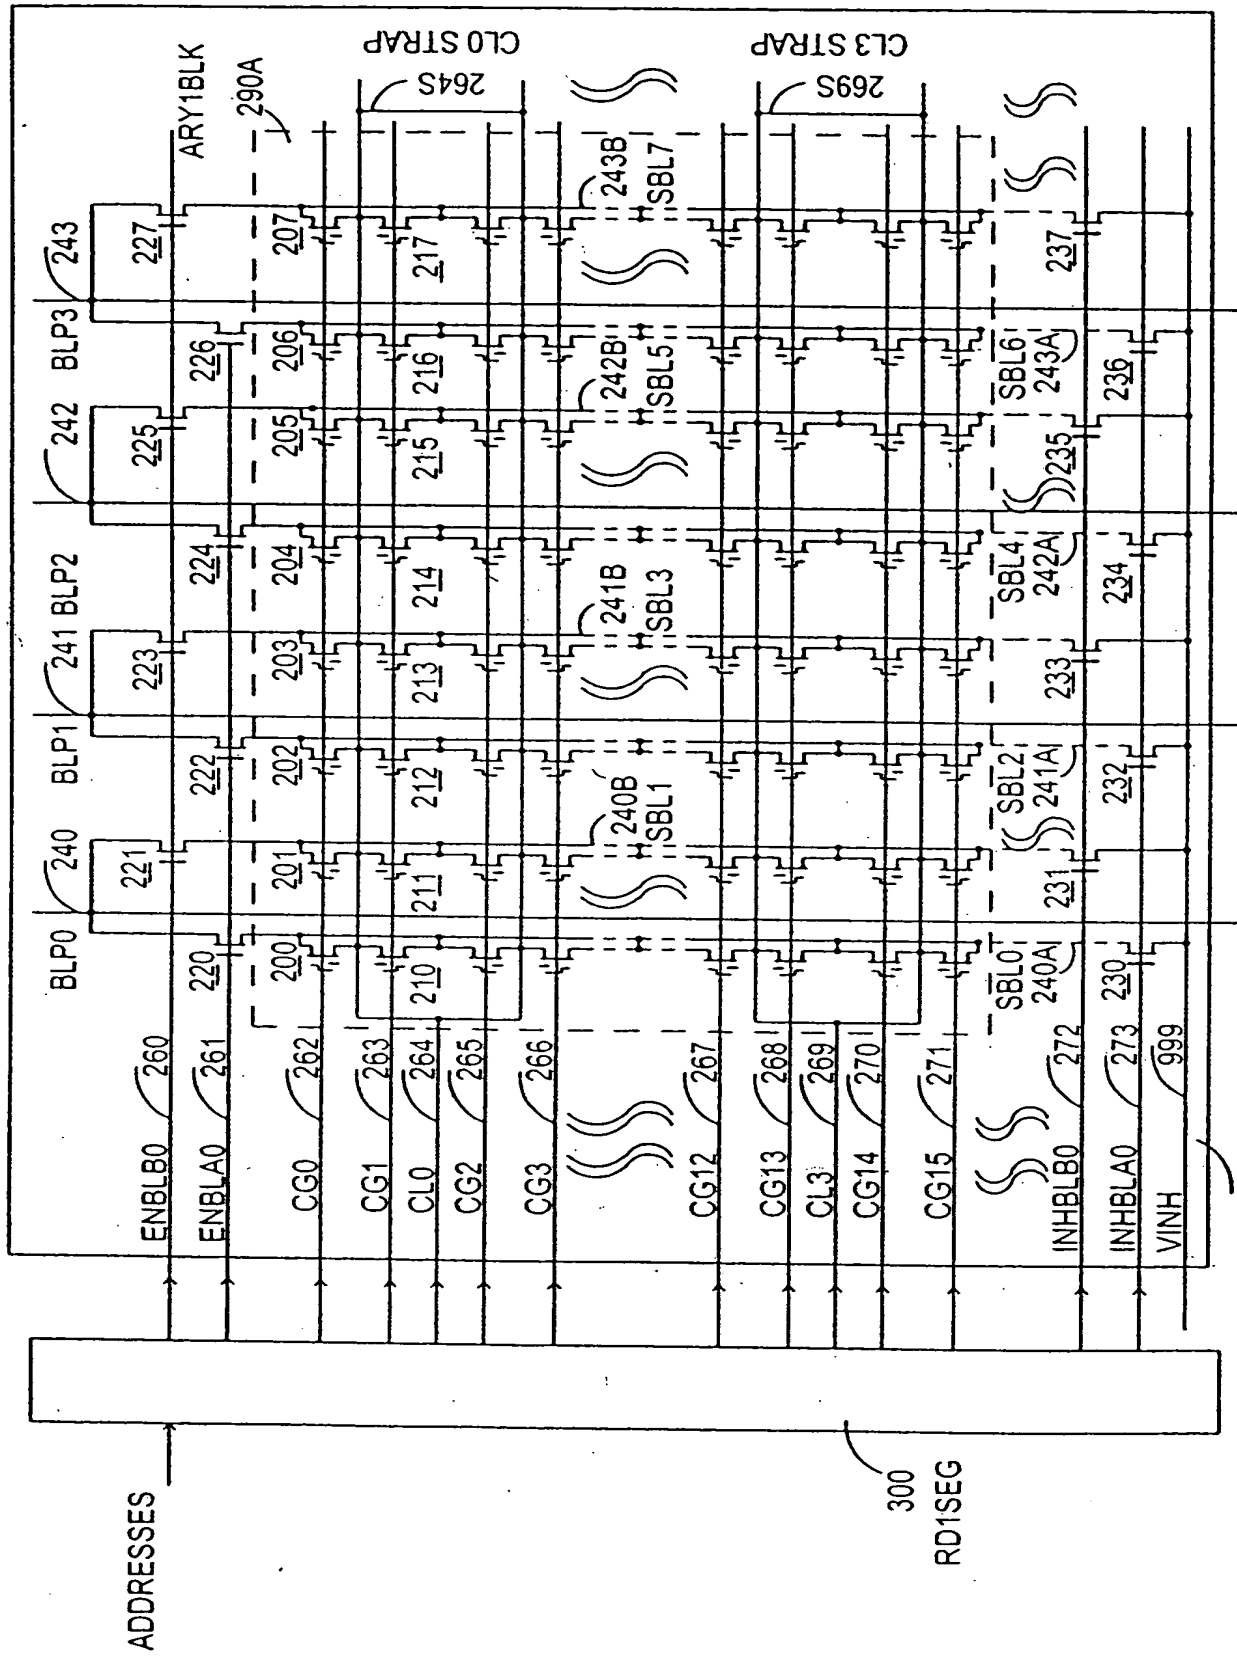 ADDRESSES
300
RD1SEG
ENBLB0 260
ENBLA0 261
CG0 262
CG1 263
CL0 264
CG2 265
CG3 266
CG12 267
CG13 268
CL3 269
CG14 270
CG15 271
INHBLB0 272
INHBLA0 273
VINH 999
BLP0 240
BLP1 241
BLP2 242
BLP3 243
ARY1BLK
290A
220 221 222 223 224 225 226 227
200 201 202 203 204 205 206 207
210 211 212 213 214 215 216 217
240B
SBL1
241B
SBL3
242B
SBL5
243B
SBL7
SBL0
240A
SBL2
241A
SBL4
242A
SBL6
243A
230 231 232 233 234 235 236 237
264S
CL0 STRAP
269S
CL3 STRAP